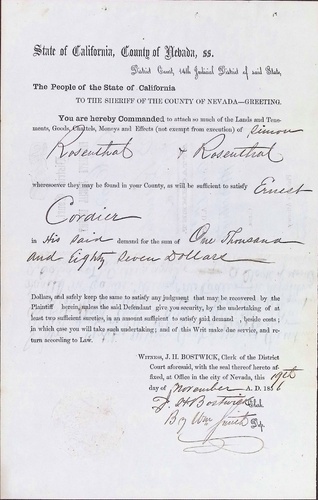 State of California, County of Nevada, ss.
District Court, 14th Judicial District of said State,
The People of the State of California
TO THE SHERIFF OF THE COUNTY OF NEVADA—GREETING.
You are hereby Commanded to attach so much of the Lands and Tene-
ments, Goods, Chattels, Moneys and Effects (not exempt from execution) of Simon
Rosenthal & Rosenthal
wheresoever they may be found in your County, as will be sufficient to satisfy Ernest
Cordier
in His said demand for the sum of One Thousand
and Eighty Seven Dollars
Dollars, and safely keep the same to satisfy any judgment that may be recovered by the
Plaintiff herein, unless the said Defendant give you security, by the undertaking of at
least two sufficient sureties, in an amount sufficient to satisfy said demand, beside costs;
in which case you will take such undertaking; and of this Writ make due service, and re-
turn according to Law.
WITNESS, J. H. BOSTWICK, Clerk of the District
Court aforesaid, with the seal thereof hereto af-
fixed, at Office in the city of Nevada, this
day of November A. D. 185
J. H Bostwick Clerk.
By Wm Smith Dep.